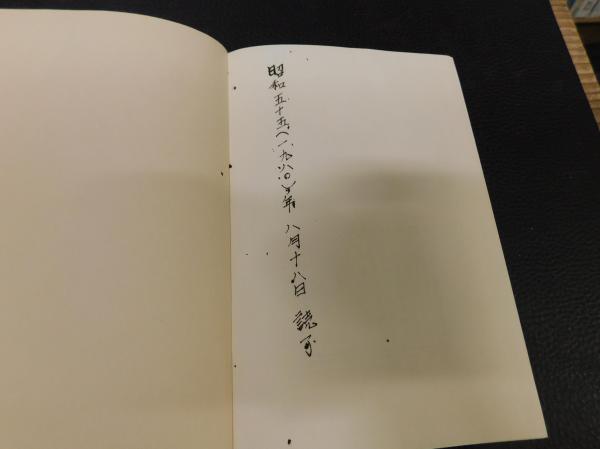 昭和五十五(一九八〇)年 八月十八日 読了